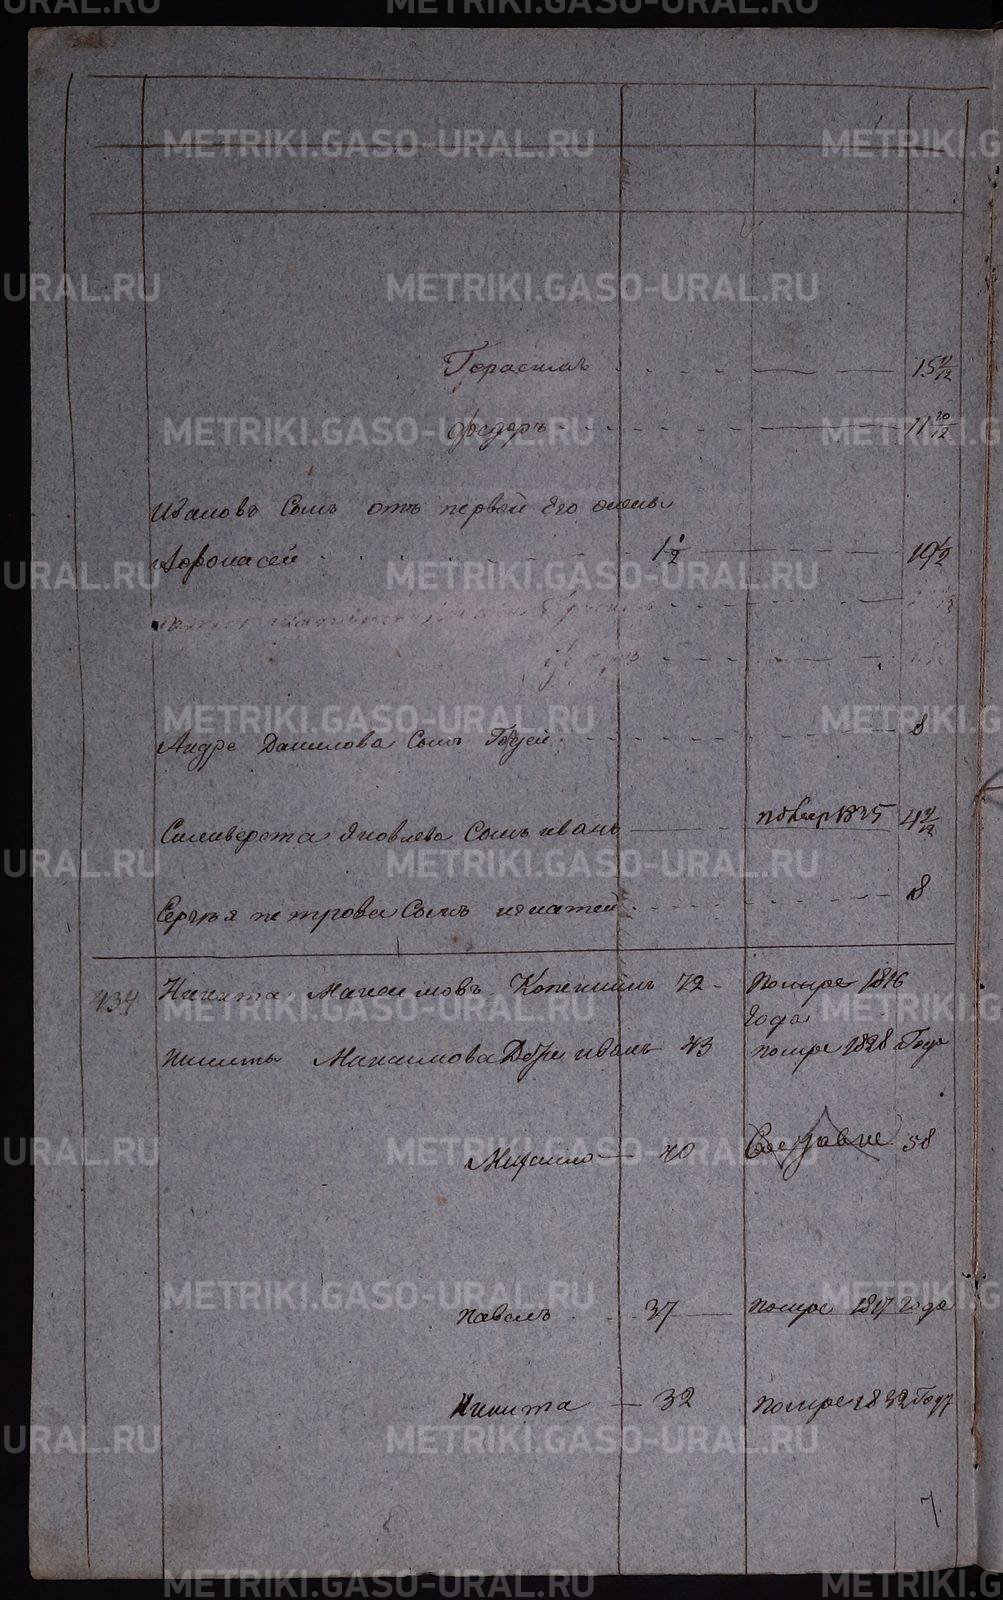 METRIKI.GASO-URAL.RU
Герасимъ 15 11/12
Федоръ 11 10/12
Ивановъ Сынъ отъ первой его жены
Афонасей 1 1/2 19 1/2
Андре Данилова Сынъ 8
Силиверста Яковлева Сынъ иванъ 1835 4 11/12
Сергъя петрова Сынъ игнатей 8
434 Никита Максимовъ 72 Помре 1816
года
никиты Максимова Дети иванъ 43 помре 1828 Года
Михаило 40 58
павелъ 37 помре 1817 года
Никита 32 помре 1832 Году
7.